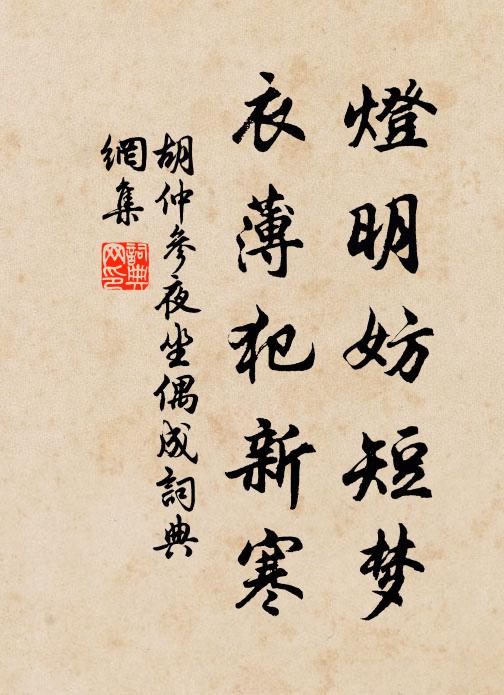 燈明妨短梦
衣薄犯新寒
胡仲參夜坐偶成詞典
網集
詞典网印